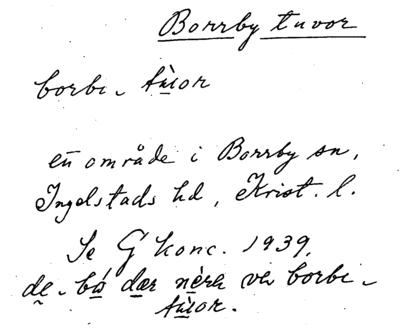 Borrby tuvor
borbi - tùor
en område i Borrby sn,
Ingelstads hd, Krist. l.
Se G konc. 1939.
de - bó dær nère ve borbi -
tùor.